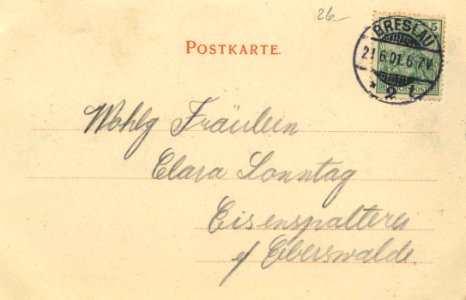 26.
5
BRESLAU
21.6.01.6-7V
POSTKARTE.
Wohlg Fräulein
Clara Sonntag
Eisenspalterei
b/ Eberswalde.